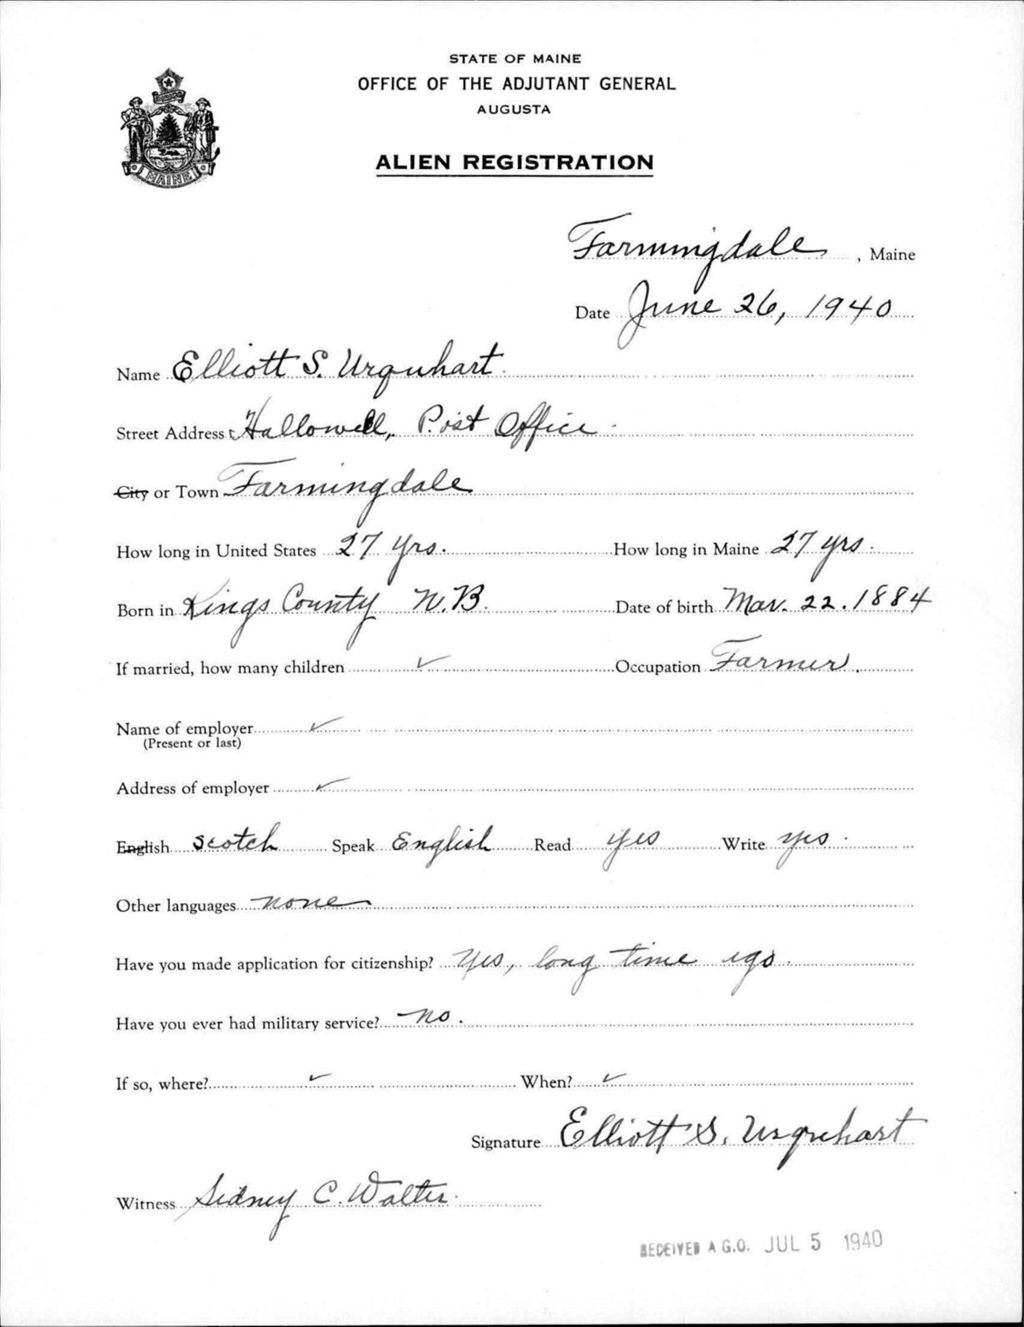 STATE OF MAINE
OFFICE OF THE ADJUTANT GENERAL
AUGUSTA
ALIEN REGISTRATION
MAINE
Farmingdale, Maine
Date June 26, 1940
Name Elliott S. Urquhart
Street Address Hallowell, Post Office
City or Town Farmingdale
How long in United States 27 yrs. How long in Maine 27 yrs.
Born in Kings County N.B. Date of birth Mar. 22. 1884
If married, how many children ✓ Occupation Farmer.
Name of employer ✓
(Present or last)
Address of employer ✓
English scotch Speak English Read yes Write yes.
Other languages none
Have you made application for citizenship? Yes, long time ago.
Have you ever had military service? no.
If so, where? ✓ When? ✓
Signature Elliott S. Urquhart
Witness Sidney C. Walter.
RECEIVED A.G.O. JUL 5 1940